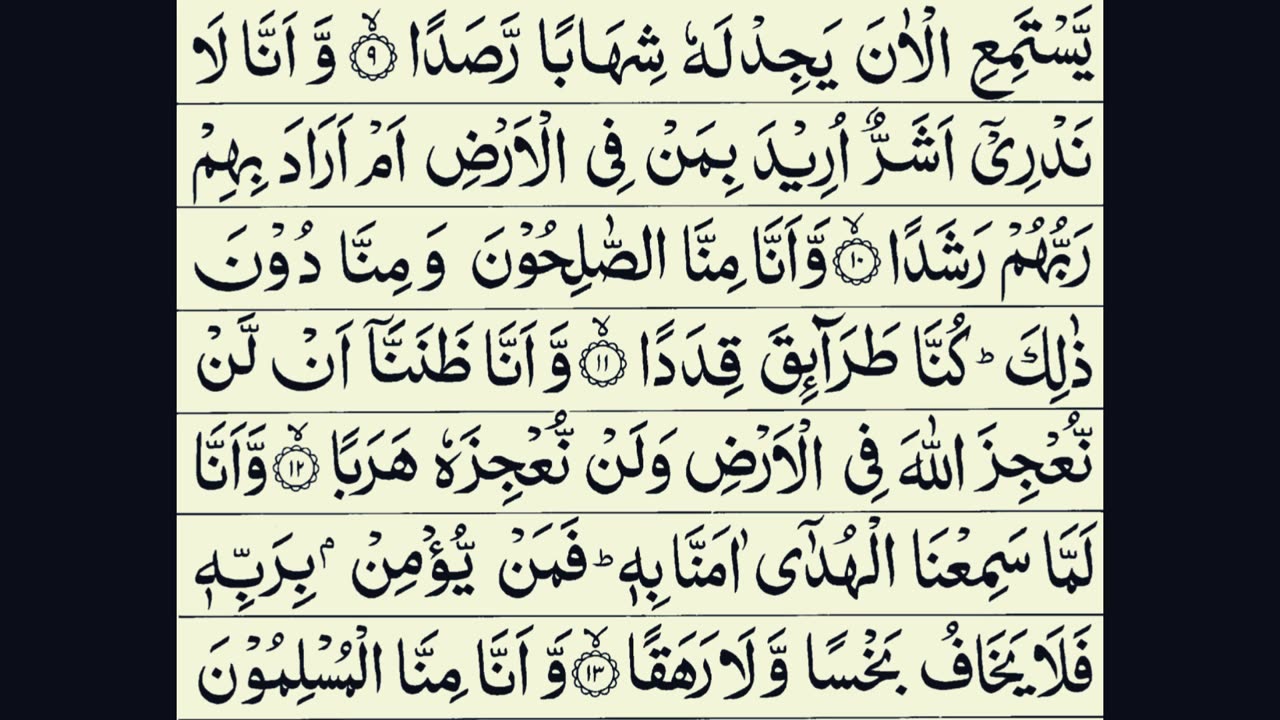 يَّسْتَمِعِ الْاٰنَ يَجِدْ لَهٗ شِهَابًا رَّصَدًا ۙ﴿۹﴾ وَّ اَنَّا لَا
نَدْرِیْۤ اَشَرٌّ اُرِيْدَ بِمَنْ فِی الْاَرْضِ اَمْ اَرَادَ بِهِمْ
رَبُّهُمْ رَشَدًا ۙ﴿۱۰﴾ وَّاَنَّا مِنَّا الصّٰلِحُوْنَ وَ مِنَّا دُوْنَ
ذٰلِكَ ؕ كُنَّا طَرَآئِقَ قِدَدًا ۙ﴿۱۱﴾ وَّ اَنَّا ظَنَنَّاۤ اَنْ لَّنْ
نُّعْجِزَ اللّٰهَ فِی الْاَرْضِ وَلَنْ نُّعْجِزَهٗ هَرَبًا ۙ﴿۱۲﴾ وَّاَنَّا
لَمَّا سَمِعْنَا الْهُدٰۤی اٰمَنَّا بِهٖ ؕ فَمَنْ يُّؤْمِنْۢ بِرَبِّهٖ
فَلَا يَخَافُ بَخْسًا وَّلَا رَهَقًا ۙ﴿۱۳﴾ وَّ اَنَّا مِنَّا الْمُسْلِمُوْنَ